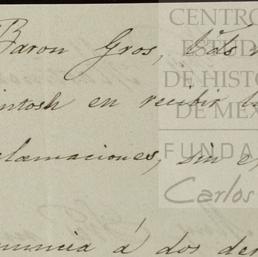 Baron Gros,
intosh en recibir
clamaciones, sin e
nuncia á dos de
CENTRO
ESTUD
DE HISTO
DE MÉX
FUNDA
Carlos